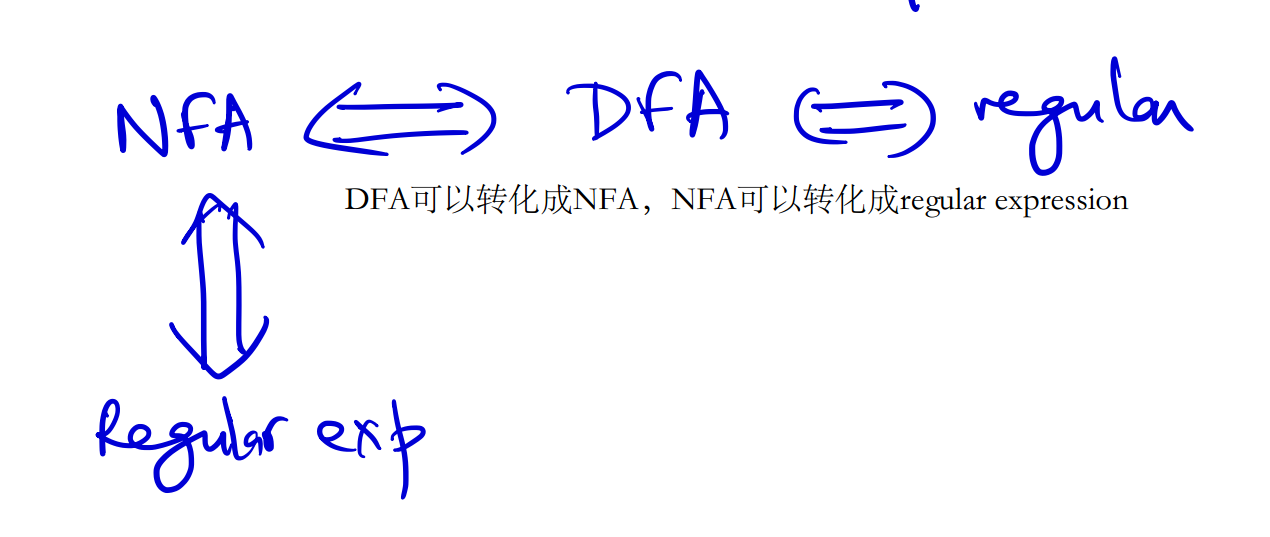 NFA ⟺ DFA ⟺ regular
DFA可以转化成NFA，NFA可以转化成regular expression
Regular exp